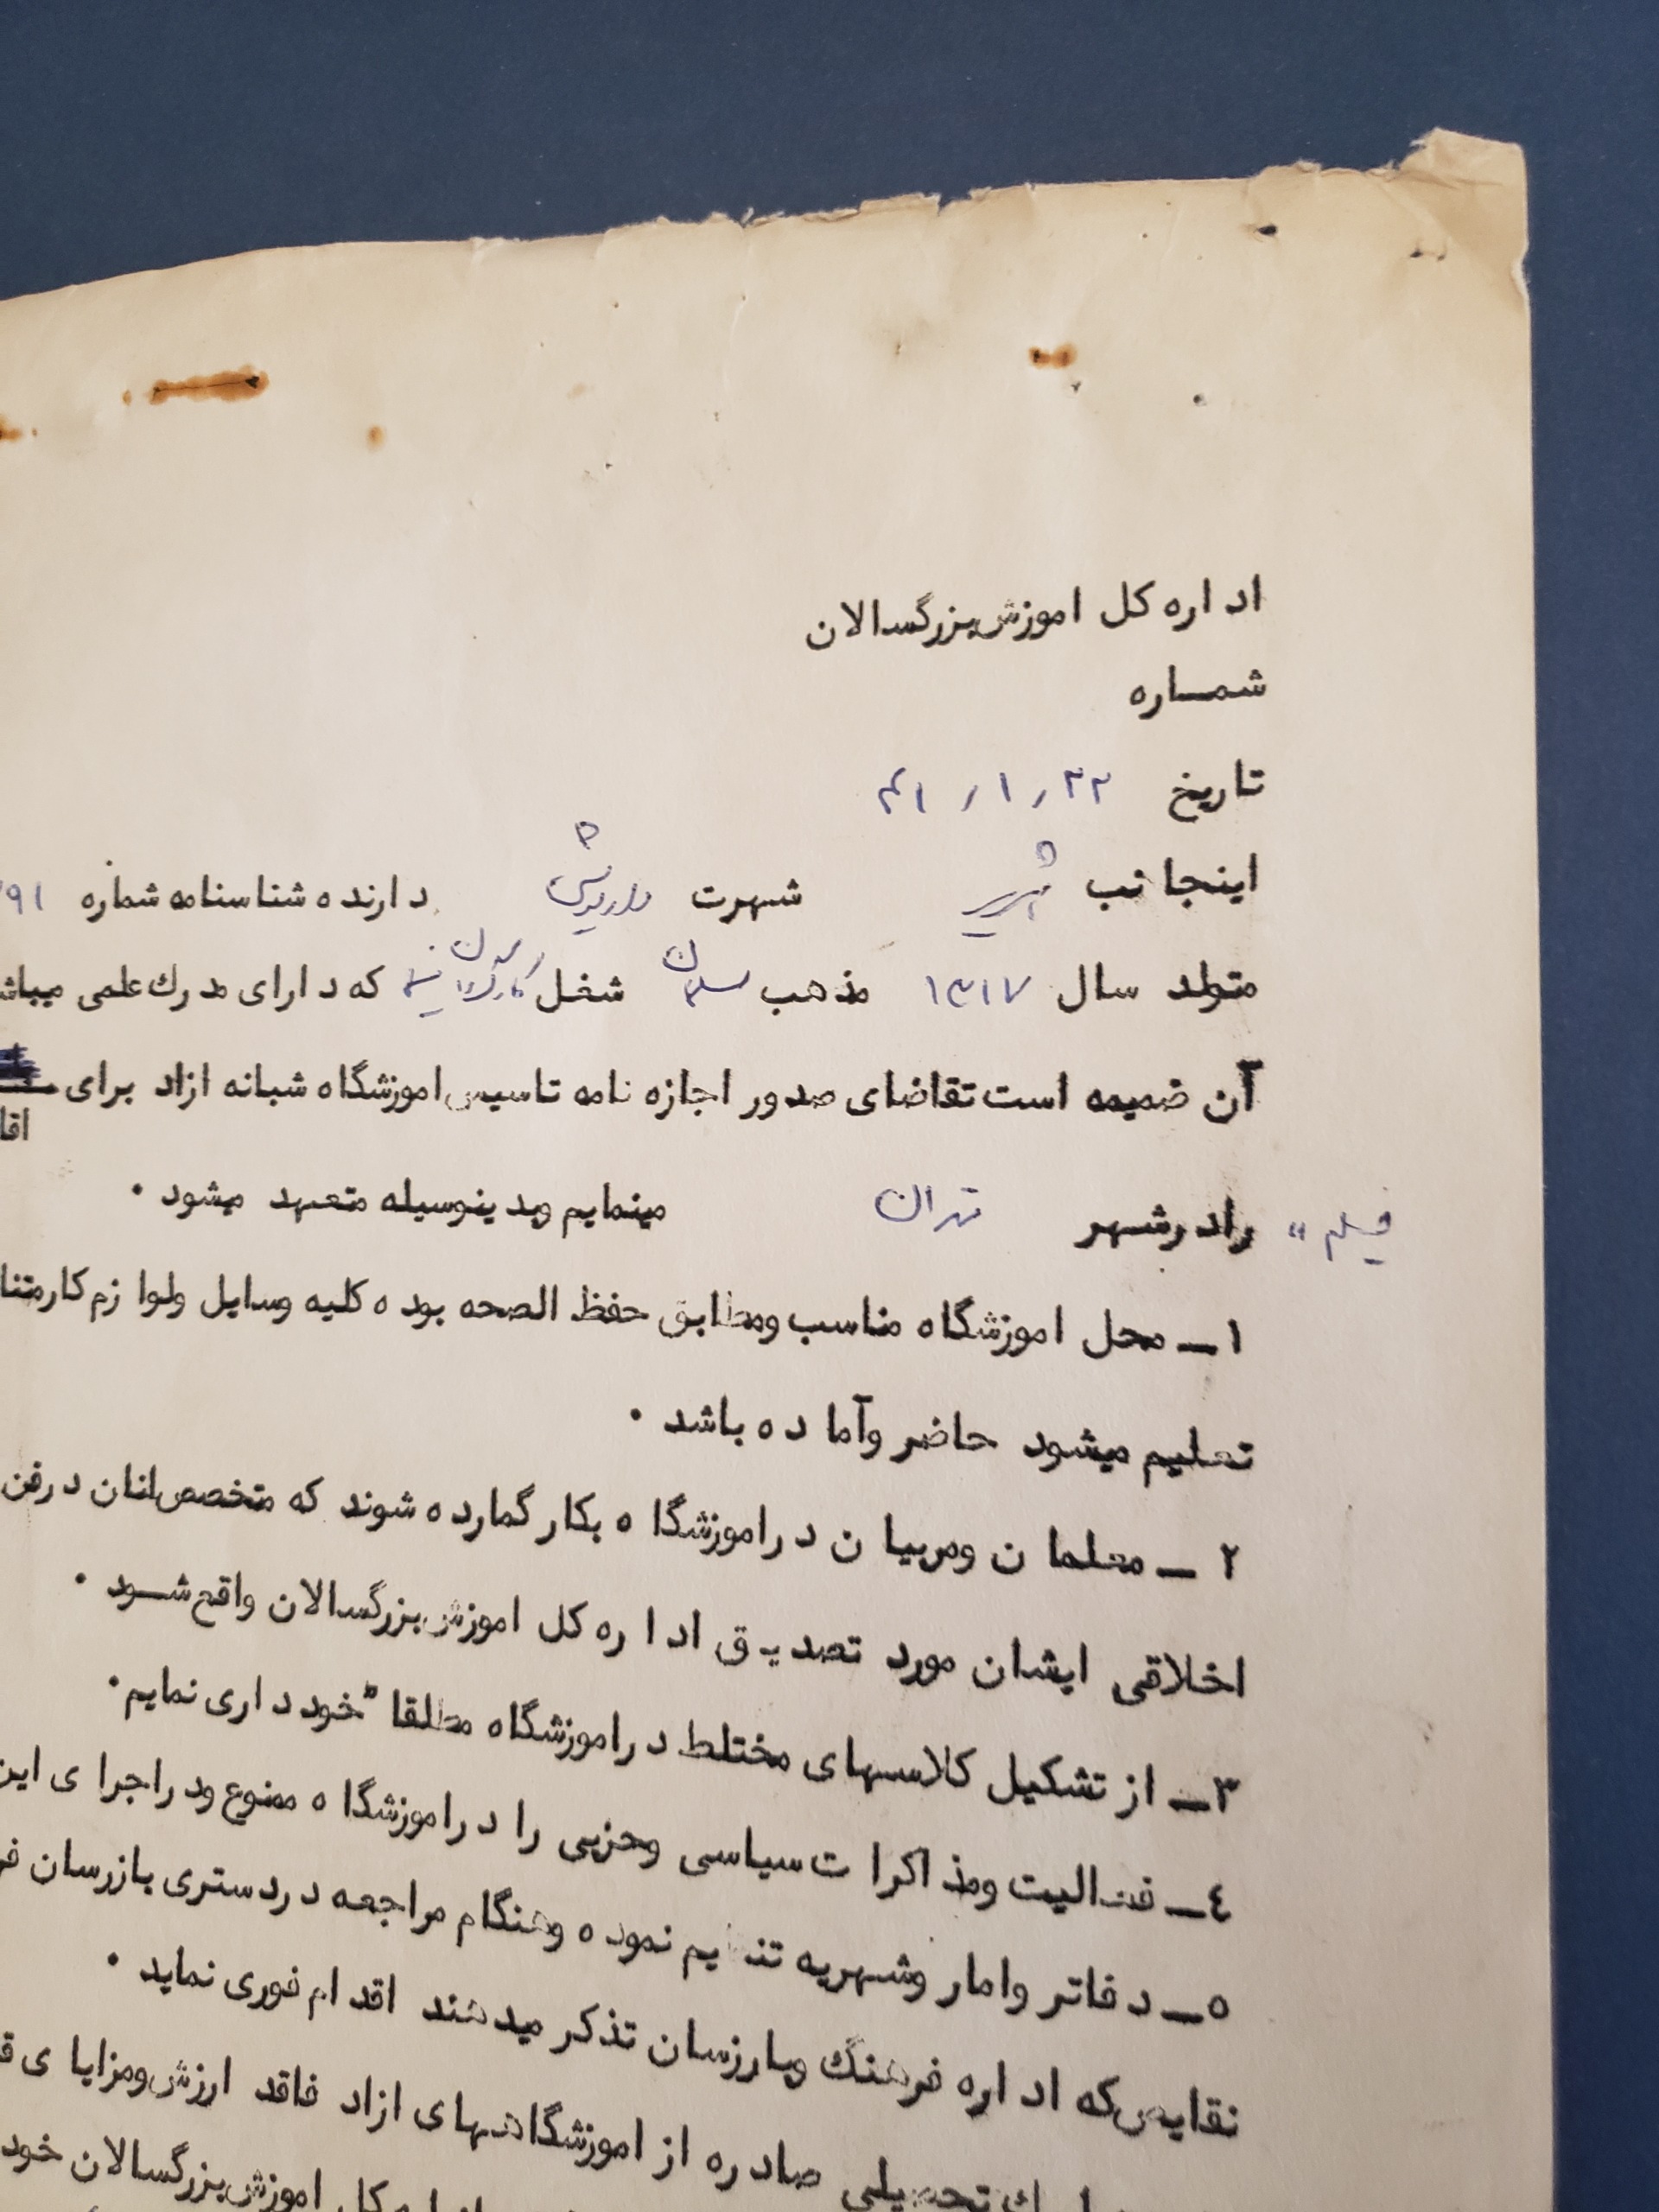 اداره کل اموزش بزرگسالان
شماره
تاریخ ۲۲ / ۱ / ۴۱
اینجانب شهرت دارنده شناسنامه شماره ۹۱
متولد سال ۱۳۱۷ مذهب مسلمان شغل که دارای مدرک علمی میباش
آن ضمیمه است تقاضای صدور اجازه نامه تاسیس اموزشگاه شبانه ازاد برای
اقا
فیلم " رادرشهر تهران مینمایم وبدینوسیله متعهد میشود .
۱ـ محل اموزشگاه مناسب ومطابق حفظ الصحه بوده کلیه وسایل ولوازم کارمتنا
تعلیم میشود حاضر وآماده باشد .
۲ ـ معلمان ومربیان دراموزشگاه بکار گمارده شوند که متخصص انان درفن
اخلاقی ایشان مورد تصدیق اداره کل اموزش بزرگسالان واقع شود .
۳ـ از تشکیل کلاسهای مختلط دراموزشگاه مطلقا" خودداری نمایم .
٤ـ فعالیت ومذاکرات سیاسی وحزبی را دراموزشگاه ممنوع ودراجرای این
۵ـ دفاتر وامار وشهریه تنظیم نموده وهنگام مراجعه دردستری بازرسان فر
نقایص که اداره فرهنگ وبارزسان تذکر میدهند اقدام فوری نماید .
تحصیلی صادره از اموزشگاههای ازاد فاقد ارزش ومزایای ق
کل اموزش بزرگسالان خود